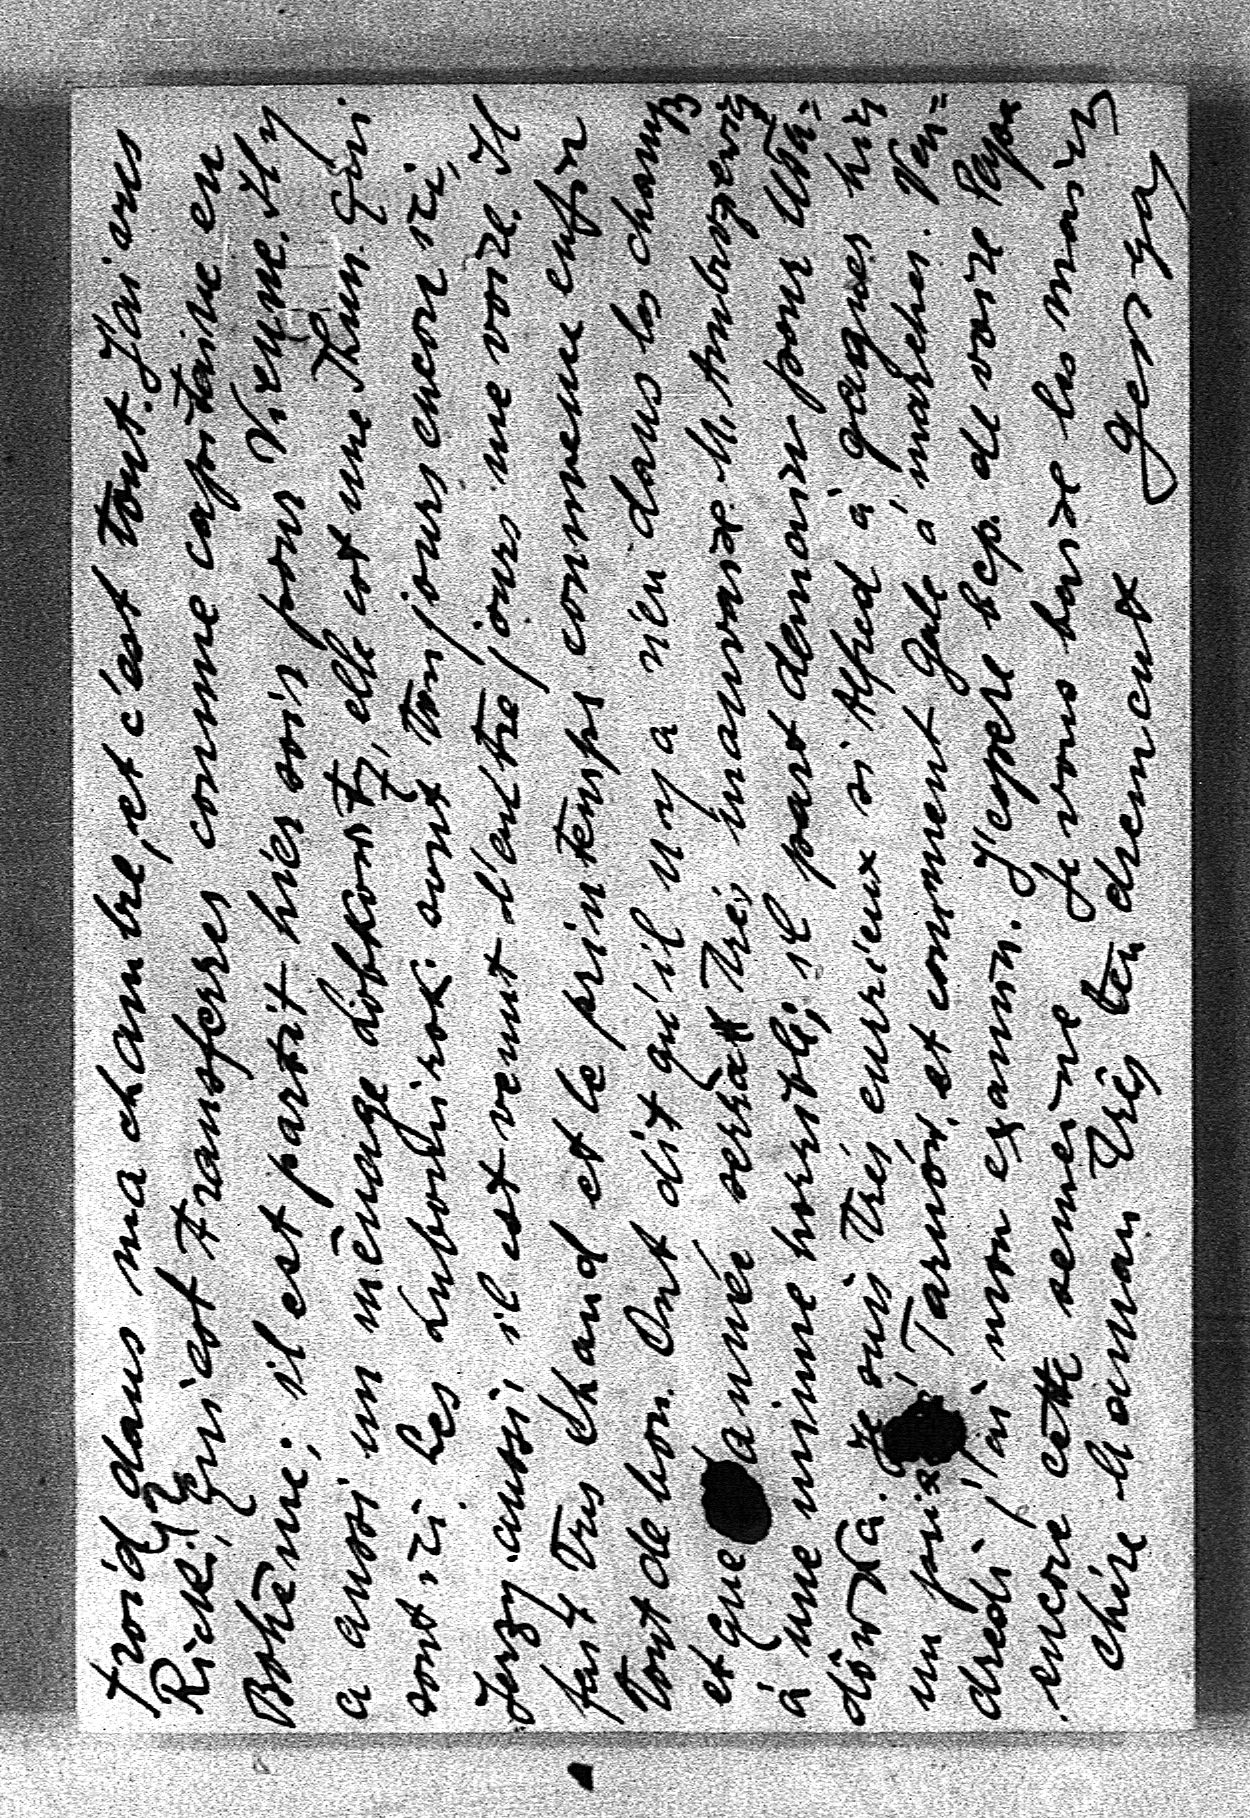 froid dans ma chambre, et c'est tout. J'ai vus
Ricki, qui est transferes comme capitaine en
Bohême; il est partit hier soir pour Vienne. Il y
a aussi un ménage Lobkovitz, elle est une Thun. Qui
sont ici. Les Lubomirski sont toujours encore ici,
Jerzy aussi, il est venut l'autre jours me voire. Il
fait tres chaud et le printemps comence enfin
tout de bon. Ont dit qu'il n'y a rien dans les champs
et que année serrat très mauvaise. M. Ambrozewicz
à une minne horrible, il part demain pour Wrá=
dówka. Je suis très currieux si Alfred à gagner hier
un prix à Tarnów, et comment Gale à marcher. Ven=
dredi j'ai mon examin. J'espere bcp. de voire Papa
encore cette semeine Je vous baise les mains
chère Maman très tendrement